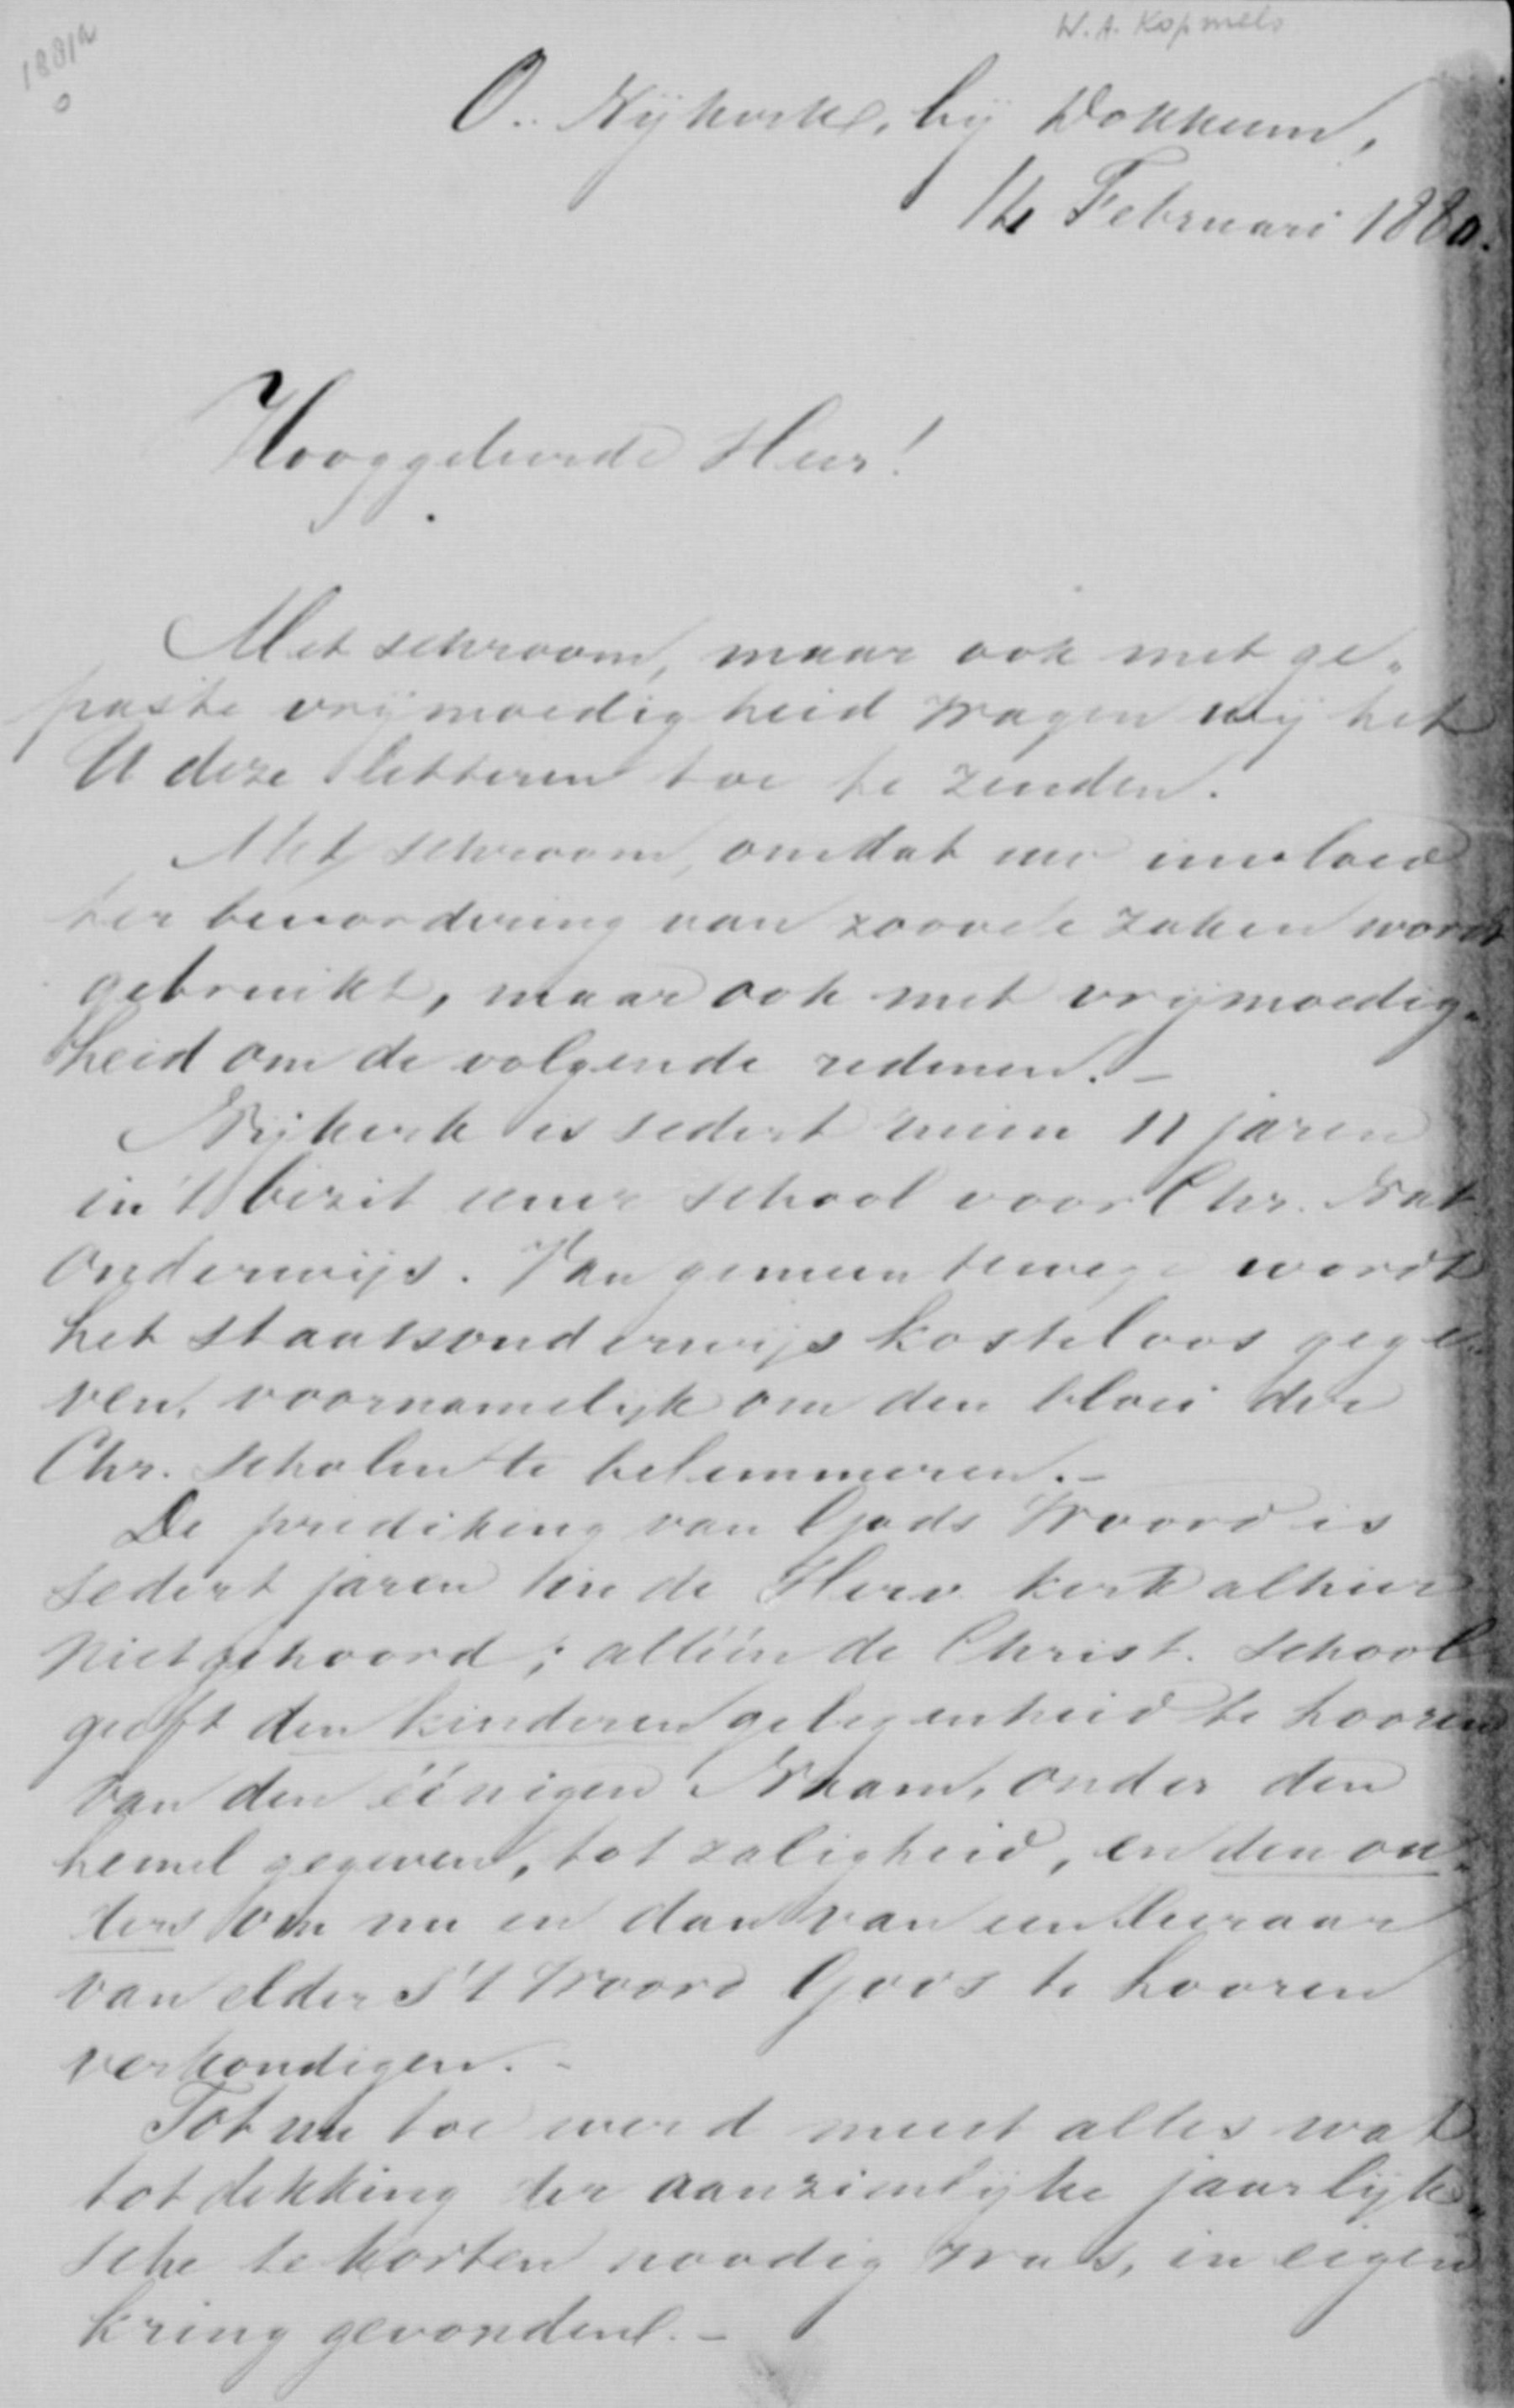 W. A. Kopmels
1881a
0
O. Nijkerk, bij Dokkum,
Februari 1880.
Hooggeleerde Heer!
Met schroom, maar ook met ge-
paste vrijmoedigheid wagen wij het
U deze letteren toe te zenden.
Met schroom, omdat uw invloed
ter bevordering van zoovele zaken wordt
gebruikt, maar ook met vrijmoedig-
heid om de volgende redenen. -
Nijkerk is sedert ruim 11 jaren
in 't bezit eener school voor Chr. Nat
onderwijs. Van gemeentewege wordt
het staatsonderwijs kosteloos gege-
ven, voornamelijk om den bloei der
Chr. scholen te belemmeren. -
De prediking van Gods Woord is
sedert jaren in de Herv. kerk alhier
niet gehoord; alléén de Christ. school
geeft den kinderen gelegenheid te hooren
van den éénigen Naam, onder den
hemel gegeven, tot zaligheid, en den ou-
ders om nu en dan van een leeraar
van elders 't Woord Gods te hooren
verkondigen. -
Tot nu toe werd meest alles wat
tot dekking der aanzienlijke jaarlijk-
sche te korten noodig was, in eigen
kring gevonden. -